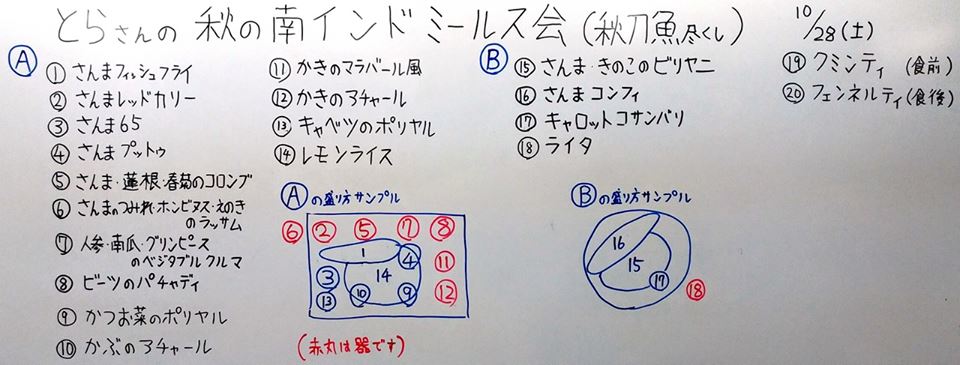 とらさんの 秋の南インドミールス会(秋刀魚尽くし) 10/28(土)
Ⓐ
① さんまフィッシュフライ
② さんまレッドカリー
③ さんま65
④ さんまプットゥ
⑤ さんま・蓮根・春菊のコロンブ
⑥ さんまのつみれ・ホンビヌス・えのき
のラッサム
⑦ 人参・南瓜・グリンピース
のベジタブルクルマ
⑧ ビーツのパチャディ
⑨ かつお菜のポリヤル
⑩ かぶのアチャール
⑪ かきのマラバール風
⑫ かきのアチャール
⑬ キャベツのポリヤル
⑭ レモンライス
Ⓑ
⑮ さんま・きのこのビリヤニ
⑯ さんまコンフィ
⑰ キャロットコサンバリ
⑱ ライタ
⑲ クミンティ (食前)
⑳ フェンネルティ(食後)
Ⓐの盛り方サンプル
⑥ ② ⑤ ⑦ ⑧
1 ④
③ 14 ⑪
⑬ ⑩ ⑨ ⑫
(赤丸は器です)
Ⓑの盛り方サンプル
16
15
⑰
⑱